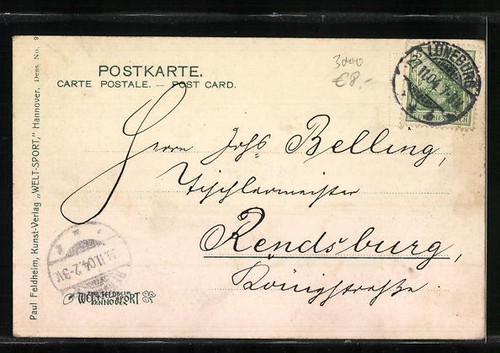 POSTKARTE.
CARTE POSTALE. — POST CARD.
3000
€8,-
LÜNEBURG
23.11.04.
Herrn Johs Belling,
Tischlermeister
Rendsburg,
Königstraße.
11.04. 2-3N.
PAUL FELDHEIM
WELT-SPORT
HANNOVER
Paul Feldheim, Kunst-Verlag „WELT-SPORT," Hannover. Dess. No. 9